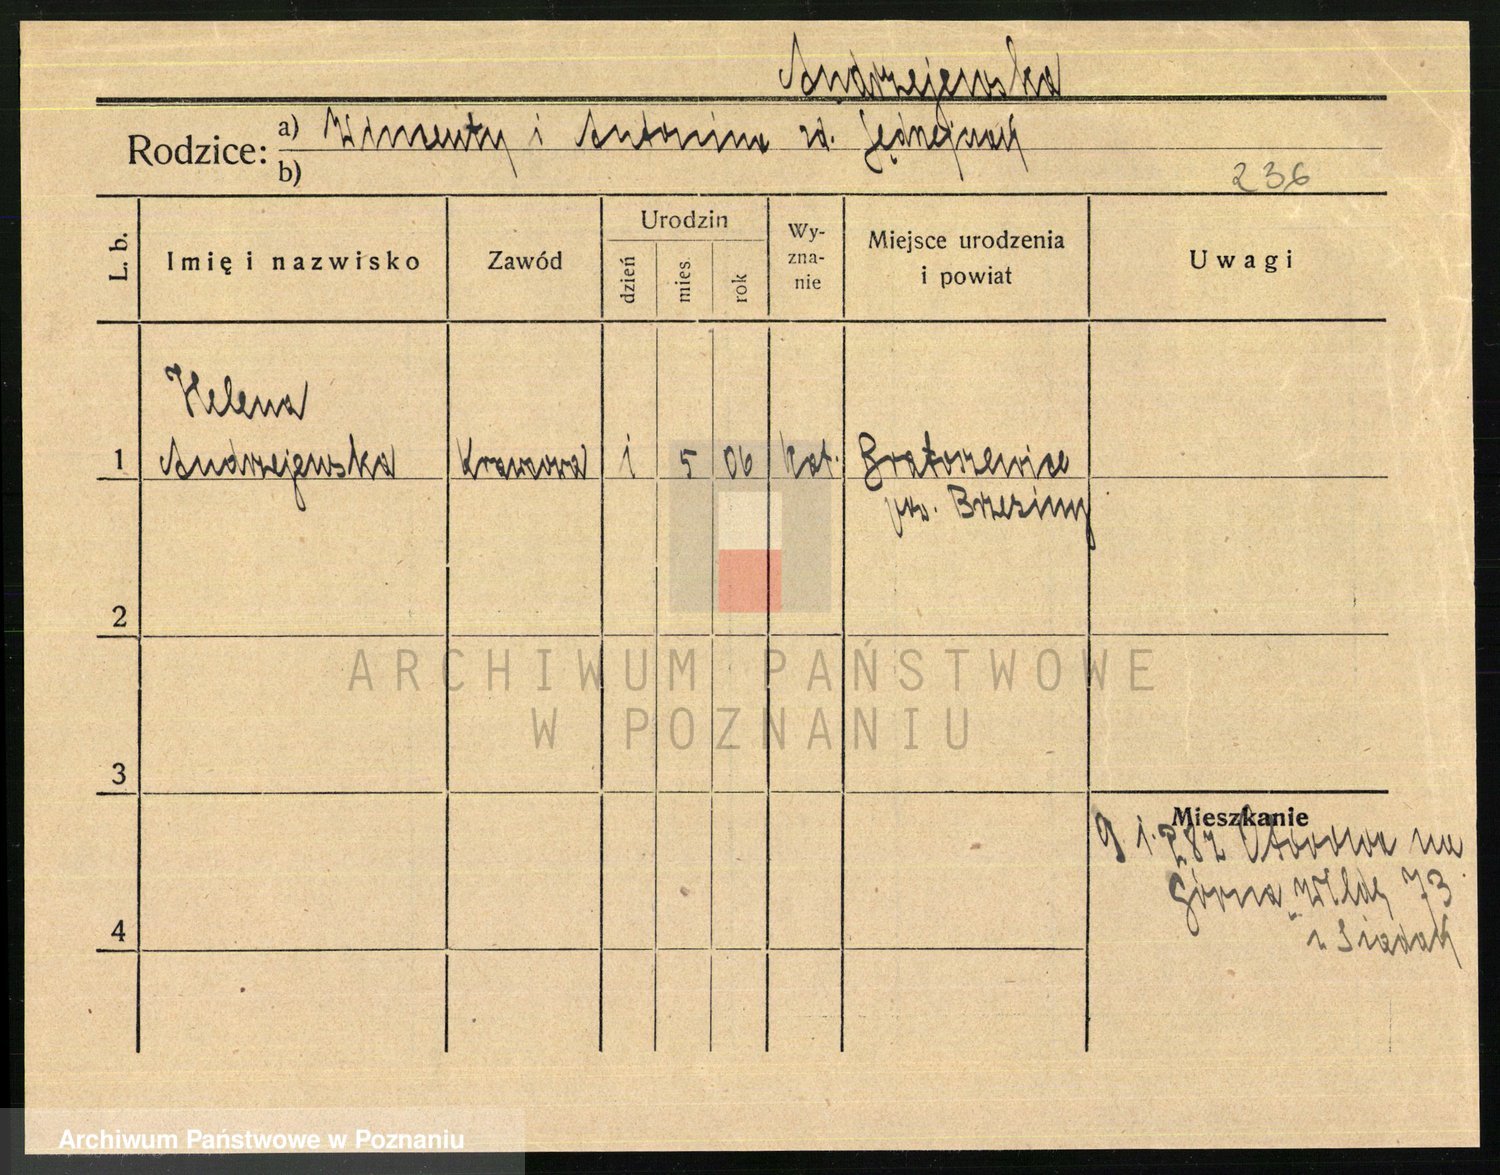 Andrzejewska
Rodzice: a) Wincenty i Antonina zd. Jędrzejczak
b)
236
L. b.
Imię i nazwisko
Zawód
Urodzin
dzień
mies.
rok
Wy-
zna-
nie
Miejsce urodzenia
i powiat
Uwagi
Helena
1 Andrzejewska Krawcowa 1 5 06 kat. Bratoszewice
pow. Brzeziny
2
3
4
Mieszkanie
Górna Wilda 73
ARCHIWUM PAŃSTWOWE
W POZNANIU
Archiwum Państwowe w Poznaniu